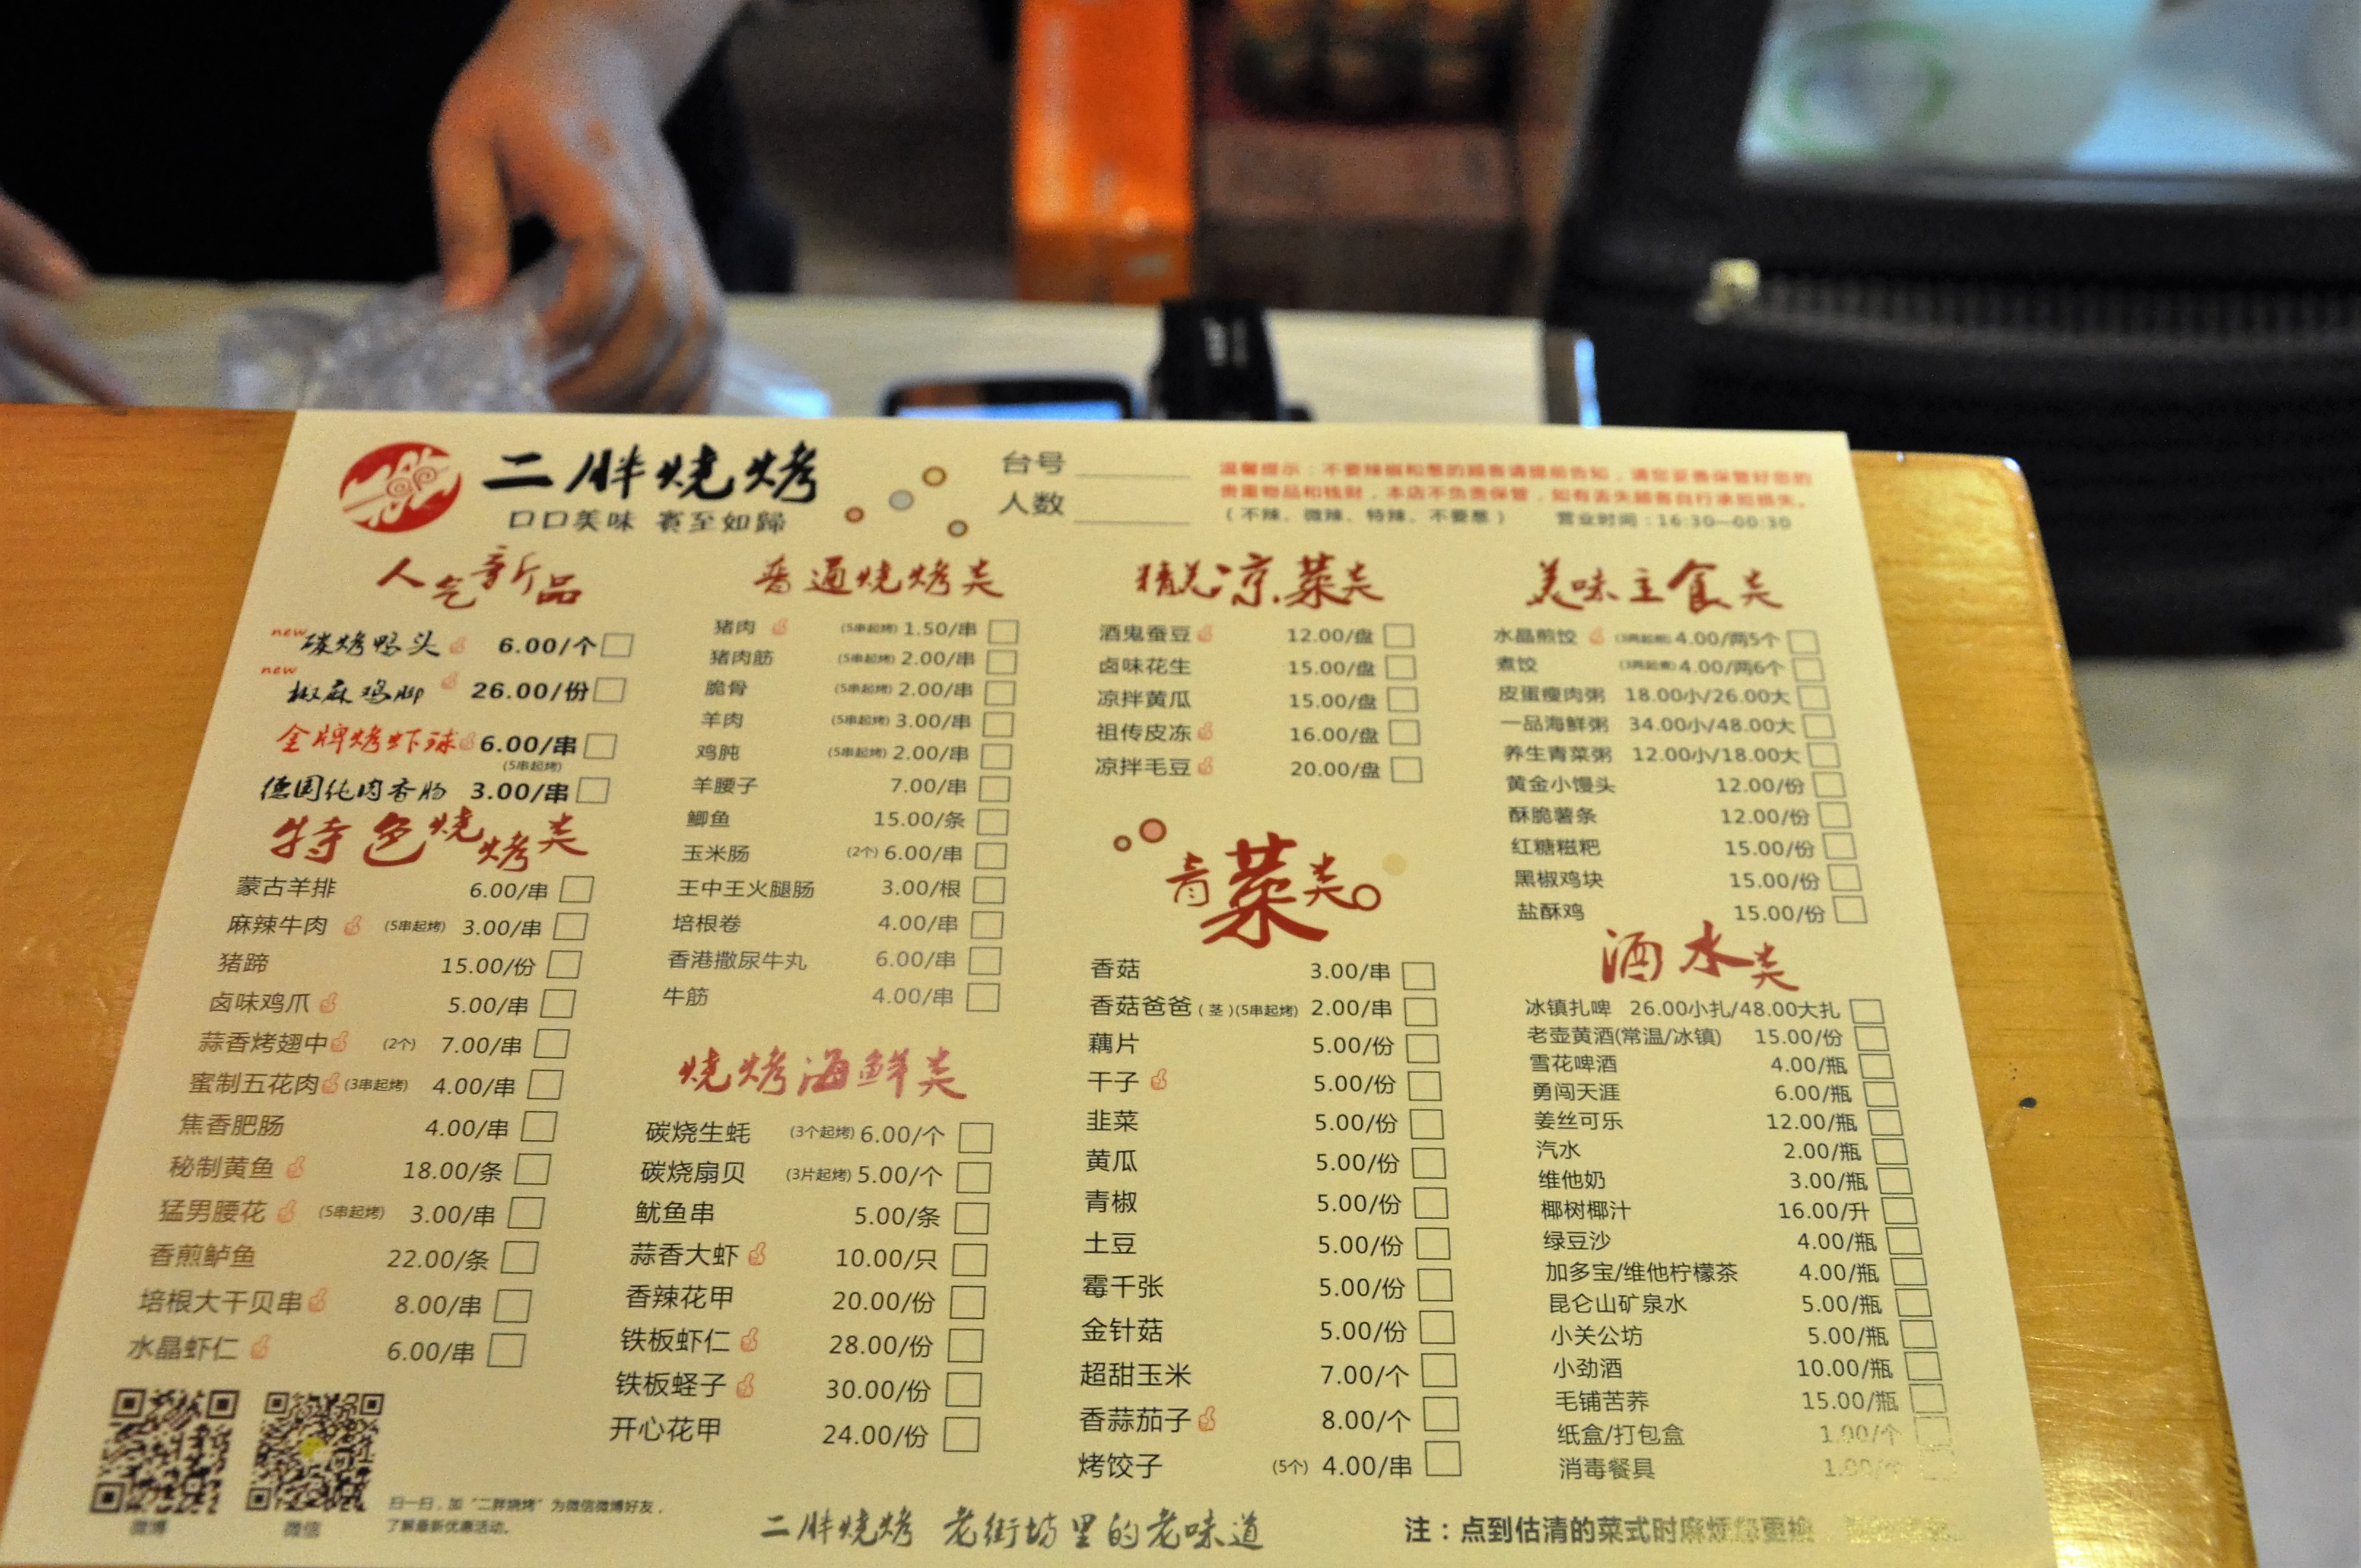 二胖烧烤
口口美味 賓至如歸
台号
人数
温馨提示：不要辣椒和葱的顾客请提前告知，请您妥善保管好您的
贵重物品和钱财，本店不负责保管，如有丢失顾客自行承担损失。
（不辣、微辣、特辣、不要葱） 营业时间：16:30—00:30
人气新品
new 碳烤鸭头 6.00/个
new 椒麻鸡脚 26.00/份
金牌烤虾球 6.00/串
(5串起烤)
德国纯肉香肠 3.00/串
特色烧烤类
蒙古羊排 6.00/串
麻辣牛肉 (5串起烤) 3.00/串
猪蹄 15.00/份
卤味鸡爪 5.00/串
蒜香烤翅中 (2个) 7.00/串
蜜制五花肉 (3串起烤) 4.00/串
焦香肥肠 4.00/串
秘制黄鱼 18.00/条
猛男腰花 (5串起烤) 3.00/串
香煎鲈鱼 22.00/条
培根大干贝串 8.00/串
水晶虾仁 6.00/串
微博
微信
扫一扫，加“二胖烧烤”为微信微博好友，
了解最新优惠活动。
普通烧烤类
猪肉 (5串起烤) 1.50/串
猪肉筋 (5串起烤) 2.00/串
脆骨 (5串起烤) 2.00/串
羊肉 (5串起烤) 3.00/串
鸡肫 (5串起烤) 2.00/串
羊腰子 7.00/串
鲫鱼 15.00/条
玉米肠 (2个) 6.00/串
王中王火腿肠 3.00/根
培根卷 4.00/串
香港撒尿牛丸 6.00/串
牛筋 4.00/串
烧烤海鲜类
碳烧生蚝 (3个起烤) 6.00/个
碳烧扇贝 (3片起烤) 5.00/个
鱿鱼串 5.00/条
蒜香大虾 10.00/只
香辣花甲 20.00/份
铁板虾仁 28.00/份
铁板蛏子 30.00/份
开心花甲 24.00/份
精美凉菜类
酒鬼蚕豆 12.00/盘
卤味花生 15.00/盘
凉拌黄瓜 15.00/盘
祖传皮冻 16.00/盘
凉拌毛豆 20.00/盘
青菜类
香菇 3.00/串
香菇爸爸（茎）(5串起烤) 2.00/串
藕片 5.00/份
干子 5.00/份
韭菜 5.00/份
黄瓜 5.00/份
青椒 5.00/份
土豆 5.00/份
霉千张 5.00/份
金针菇 5.00/份
超甜玉米 7.00/个
香蒜茄子 8.00/个
烤饺子 (5个) 4.00/串
美味主食类
水晶煎饺 (3两起煎) 4.00/两5个
煮饺 (3两起煮) 4.00/两6个
皮蛋瘦肉粥 18.00小/26.00大
一品海鲜粥 34.00小/48.00大
养生青菜粥 12.00小/18.00大
黄金小馒头 12.00/份
酥脆薯条 12.00/份
红糖糍粑 15.00/份
黑椒鸡块 15.00/份
盐酥鸡 15.00/份
酒水类
冰镇扎啤 26.00小扎/48.00大扎
老壶黄酒(常温/冰镇) 15.00/份
雪花啤酒 4.00/瓶
勇闯天涯 6.00/瓶
姜丝可乐 12.00/瓶
汽水 2.00/瓶
维他奶 3.00/瓶
椰树椰汁 16.00/升
绿豆沙 4.00/瓶
加多宝/维他柠檬茶 4.00/瓶
昆仑山矿泉水 5.00/瓶
小关公坊 5.00/瓶
小劲酒 10.00/瓶
毛铺苦荞 15.00/瓶
纸盒/打包盒 1.00/个
消毒餐具 1.00/
二胖烧烤 老街坊里的老味道
注：点到估清的菜式时麻烦您更换